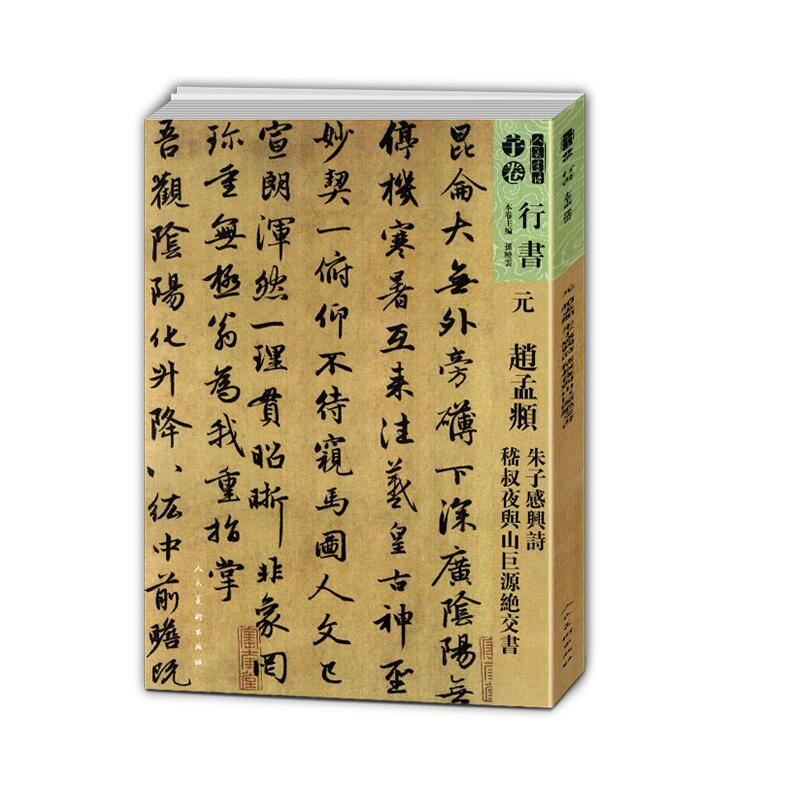 人美書譜
宇卷
行書
本卷主編 孫曉雲
元 趙孟頫
朱子感興詩
嵇叔夜與山巨源絶交書
昆侖大無外旁礴下深廣陰陽無
停機寒暑互来往羲皇古神聖
妙契一俯仰不待窺馬圖人文已
宣朗渾然一理貫昭晰非象罔
珎重無極翁為我重指掌
吾觀陰陽化升降八紘中前瞻既
人民美術出版社
人民美術出版社